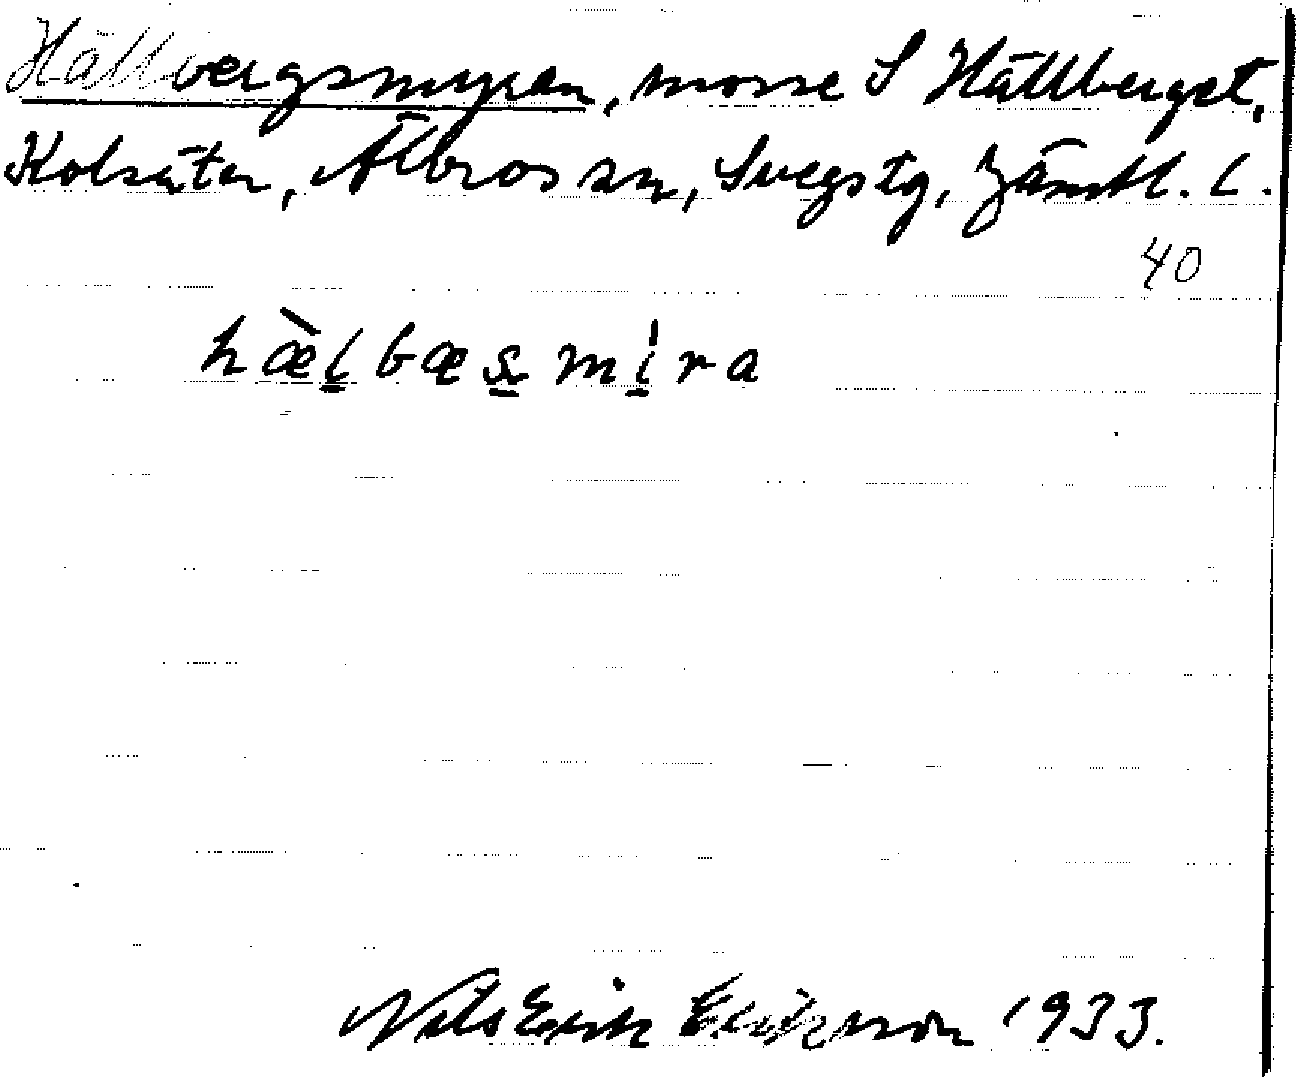 Hällbergsmyren, mosse S Hällberget,
Kolsäter, Älvros sn, Svegs tg, Jämtl. l.
40
hæ̀lbæsmira
Nils Erik Eriksson 1933.